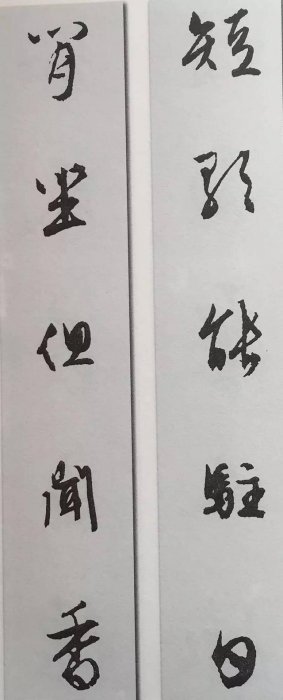 短歌能駐日
閒坐但聞香